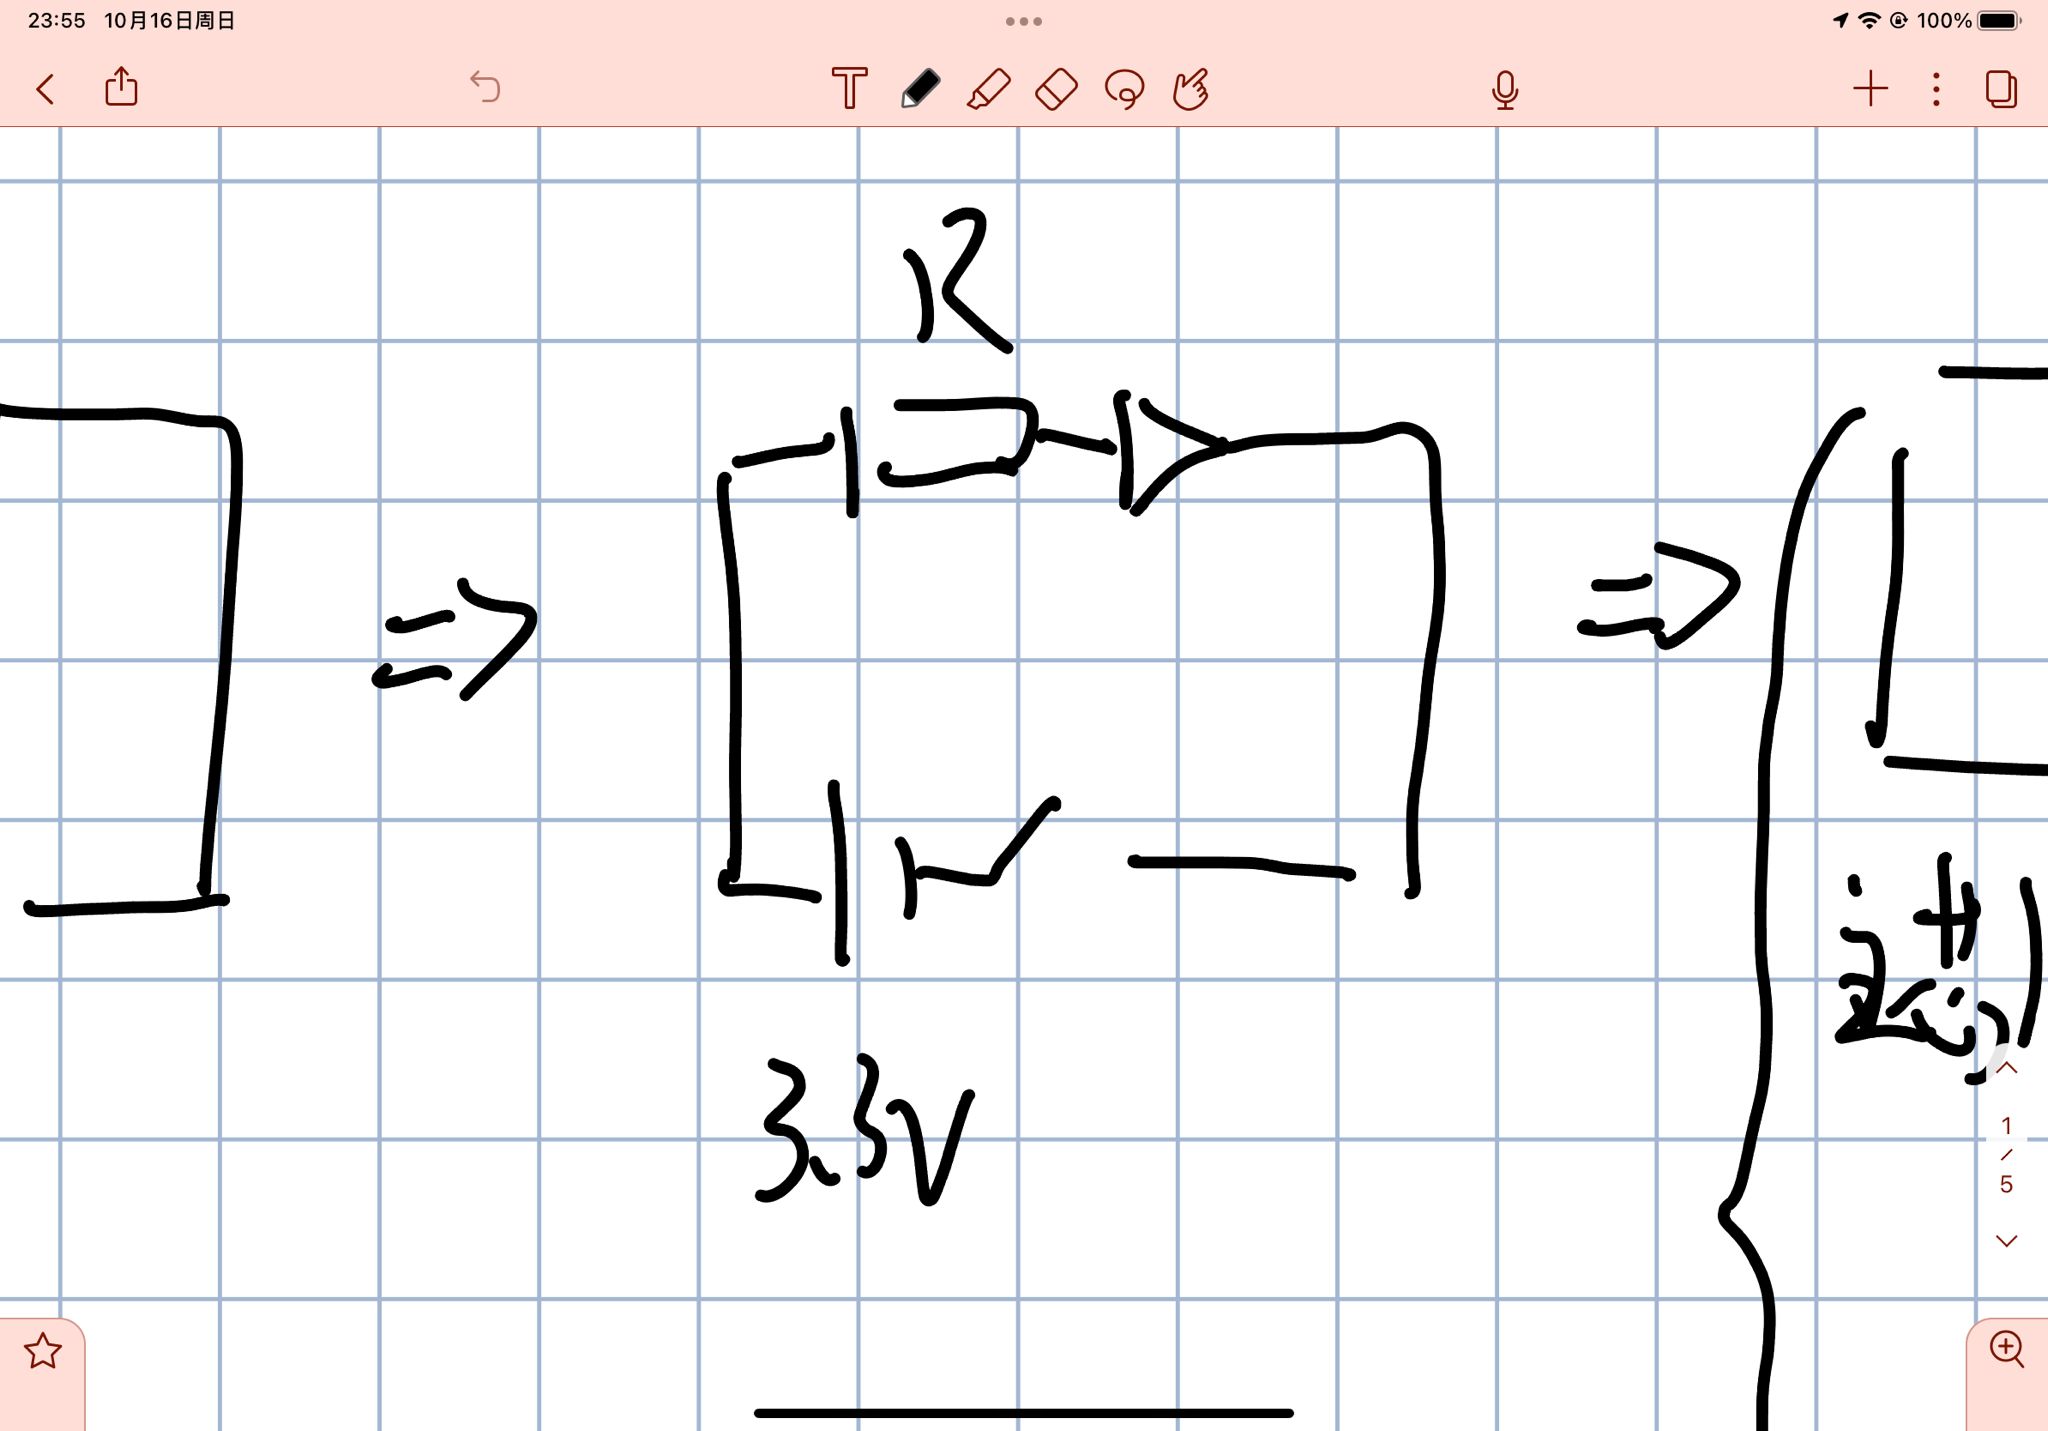 23:55 10月16日周日
100%
R
3.3V
1
/
5